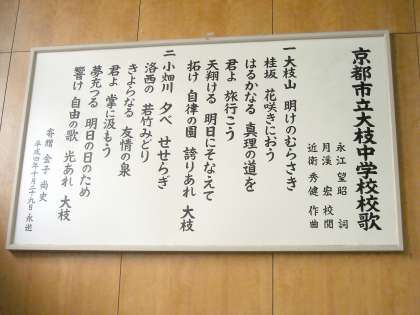 京都市立大枝中学校校歌
永江望昭 詞
月溪 宏 校閲
近衛秀健 作曲
一 大枝山 明けのむらさき
桂坂 花咲きにおう
はるかなる 真理の道を
君よ 旅行こう
天翔ける 明日にそなえて
拓け 自律の園 誇りあれ 大枝
二 小畑川 夕べ せせらぎ
洛西の 若竹みどり
きよらなる 友情の泉
君よ 掌に汲もう
夢充つる 明日の日のため
響け 自由の歌 光あれ 大枝
寄贈 金子 尚史
平成四年十月二十九日 永逝